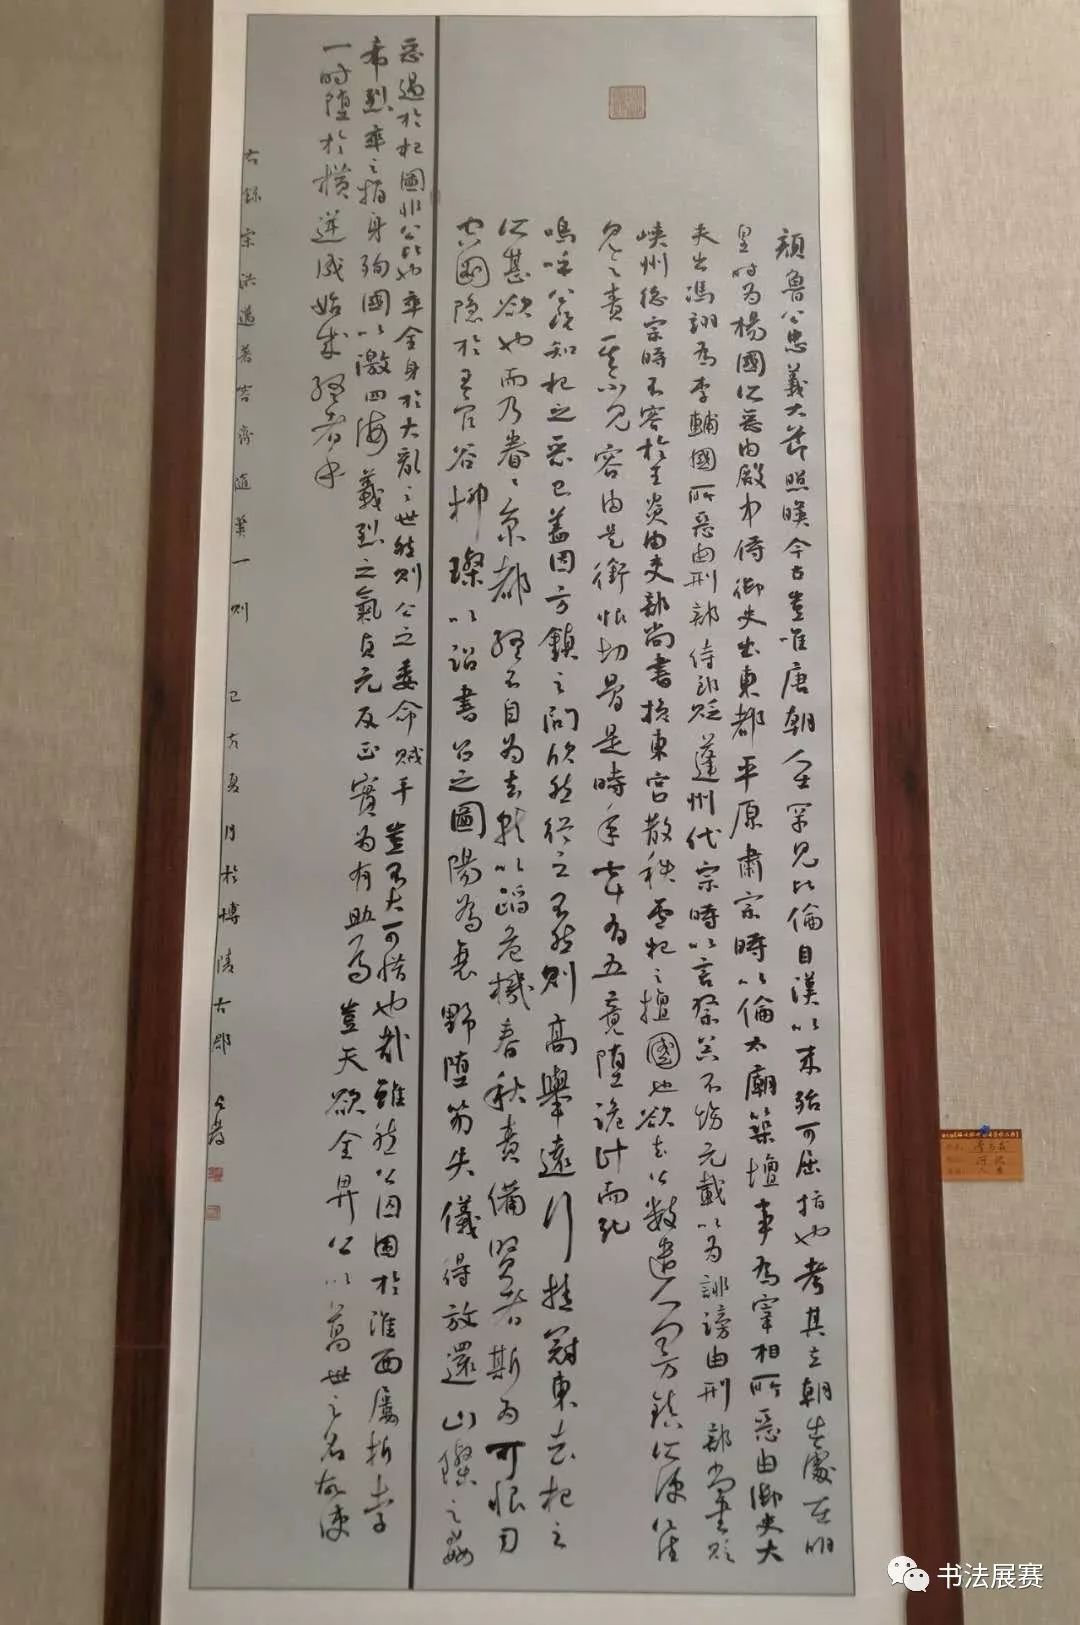 顏魯公忠義大節照暎今古豈唯唐朝人士罕見比倫自漢以來殆可屈指也考其立朝出處在明
皇時為楊國所惡由殿中侍御史出東都平原肅宗時以論太廟築壇事為宰相所惡由御史大
夫出馮翊為李輔國所惡由刑部侍郎貶蓬州代宗時以言祭器不飭元載以為誹謗由刑部尚書貶
峽州德宗時不容於炎由吏部尚書換東宮散秩盧杞之擅國也欲去公數遣人問方鎮所便公往
見之責其不見容由是銜恨切骨是時年七十有五竟墮詭計而死
嗚呼公既知杞之惡己盍因方鎮之問欣然從之不然則高舉遠引掛冠東去杞之
所甚欲也而乃眷眷京都終不自為去就以蹈危機春秋責備賢者斯為可恨司
空圖隱於王官谷柳璨以詔書召之圖陽為衰野墮笏失儀得放還山璨之姦
惡過於杞圖非公比也卒全身於大亂之世然則公之委命賊手豈不大可惜也哉雖然公囚困於淮西屢折李
希烈卒之捐身徇國以激四海義烈之氣貞元反正實為有助焉豈天欲全畀公以萬世之名故使
一時墮於橫逆成始成終者乎
右錄宋洪邁著容齋隨筆一則 己亥夏月於博陵古郡
书法展赛